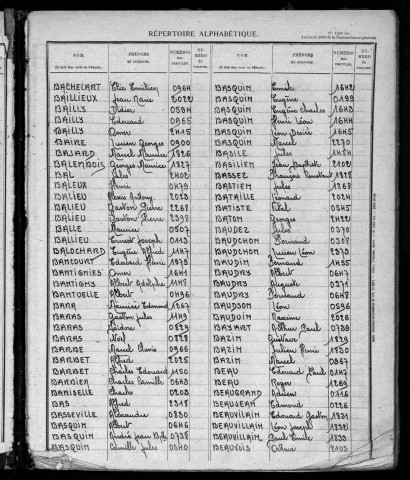 RÉPERTOIRE ALPHABÉTIQUE.
NOM. PRÉNOMS NUMÉROS NOM. PRÉNOMS NUMÉROS
BACHELART Elie Emilien 0964 BASQUIN Emile 1642
BAILLIEUX Jean Marie 2022 BASQUIN Eugène 2199
BAILLY Didier 0584 BASQUIN Eugène Charles 1643
BAILLY Edouard 0965 BASQUIN Henri Léon 1644
BAILLY Omer 2415 BASQUIN Léon Désiré 1645
BAIRE Lucien Georges 0900 BASQUIN Marcel 2270
BAJARD Marcel Maurice 1826 BASILE Jules 1484
BALEMBOIS Georges Maurice 1827 BASILIEN Jean Baptiste 2102
BAL Jules 2402 BASSEZ François Constant 1828
BALEUX Henri 0479 BASTIEN Jules 1268
BALIEU Alexis Antony 2023 BATAILLE Léonard 2024
BALIEU Gaston Pierre 2268 BATISTE Vital 0545
BALIEU Gaston Pierre 2398 BATON Georges 2422
BALLE Maurice 0507 BAUDEZ Jules 0370
BALLIEU Ernest Joseph 1113 BAUDCHON Fernand 0308
BALOCHARD Eugène Alfred 1147 BAUDCHON Lucien Léon 2273
BANCOURT Edouard Henri 1978 BAUDIN Fernand 1455
BANTIGNIES Omer 1641 BAUDRY Albert 0647
BANTIGNY Albert Adolphe 1148 BAUDRY Auguste 0371
BANTUELLE Albert 0496 BAUDRY Fernand 0648
BARA Maurice Edmond 1267 BAUDSON Léon 0596
BARAS Gaston Jules 1149 BAUDUIN Maxime 2026
BARAS Isidore 0829 BAYART Arthur Paul 0739
BARAS Noël 0828 BAZIN Gustave 1829
BARBE Marcel Clovis 0966 BAZIN Julien Henri 1830
BARBET Alfred 2025 BAZIN Marcel 0967
BARBET Charles Edouard 1150 BEAU Edouard Paul 0147
BARBIER Charles Camille 0643 BEAU Roger 1269
BARISELLE Charles 0203 BEAUGRAND Adrien 0116
BAS Alfred 2318 BEAUJEAN Edmond 0226
BASSEVILLE Alexandre 0830 BEAUVILAIN Edouard Gaston 1831
BASQUIN Albert 0646 BEAUVILLAIN Léon Joseph 1832
BASQUIN André Jean 0738 BEAUVILLAIN Paul Emile 1833
BASQUIN Camille Jules 0540 BEAUVOIS Octave 2103